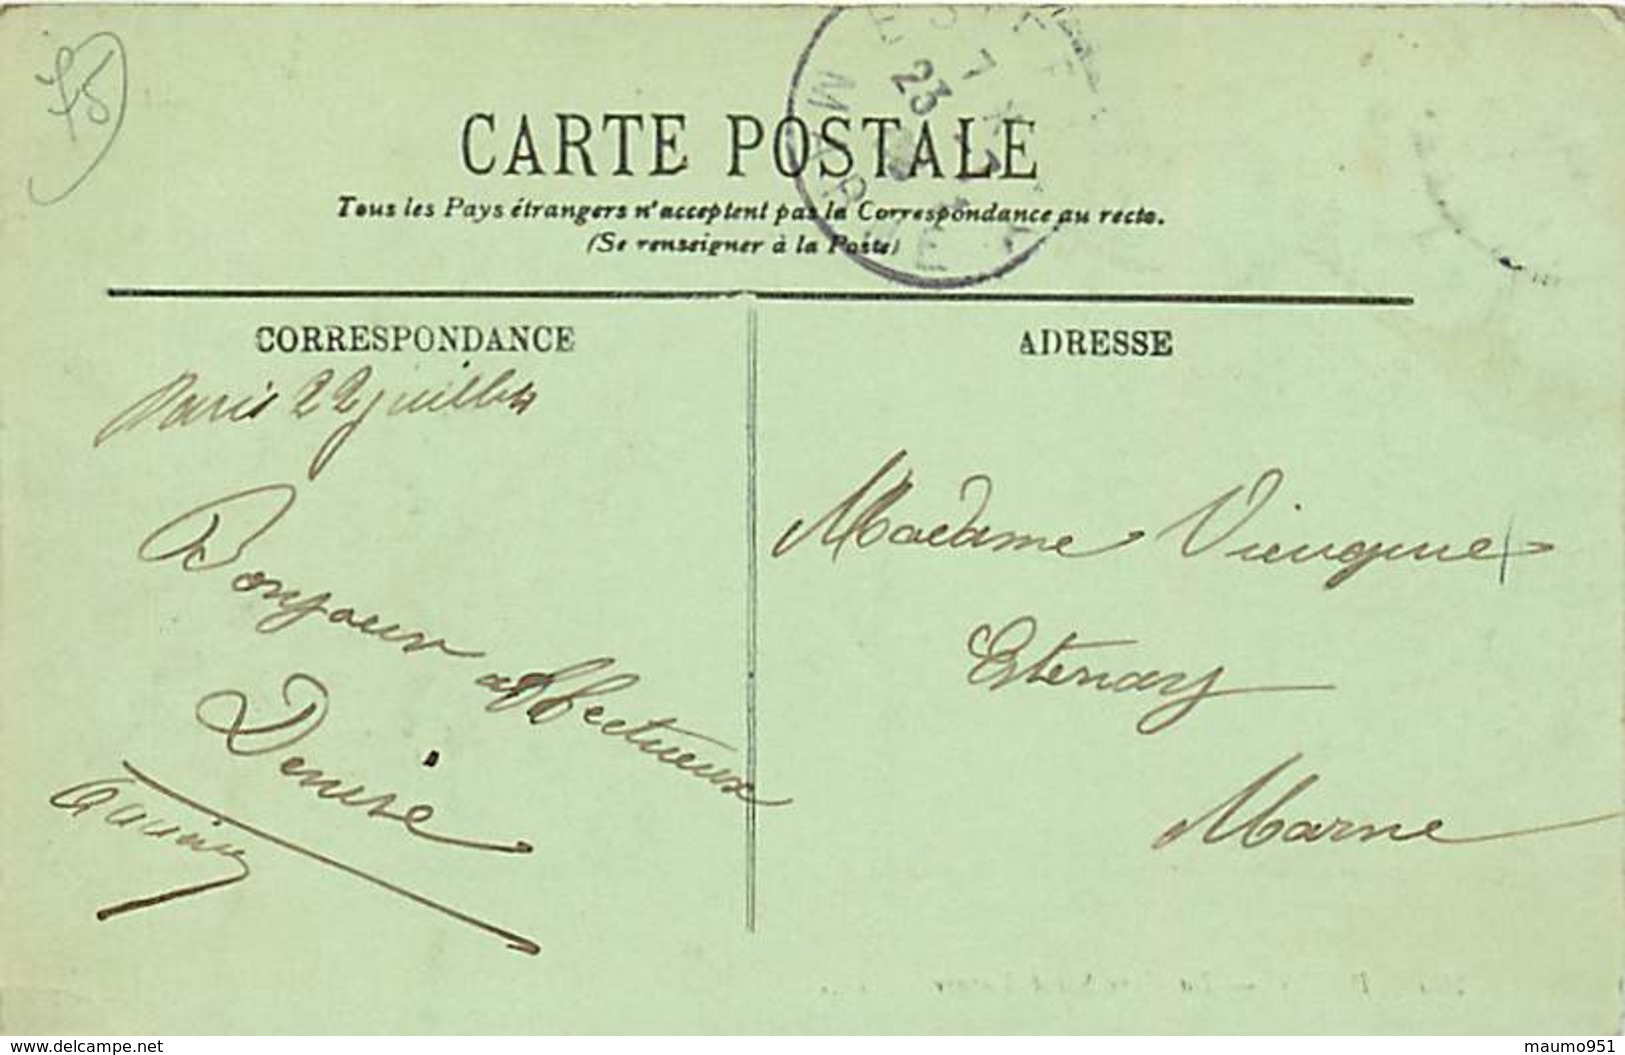 75
CARTE POSTALE
Tous les Pays étrangers n'acceptent pas la Correspondance au recto.
(Se renseigner à la Poste)
23
MARNE
CORRESPONDANCE
ADRESSE
Paris 22 juillet
Bonjour affectueux
Denise
Madame Viengne
Esternay
Marne
www.delcampe.net
maumo951